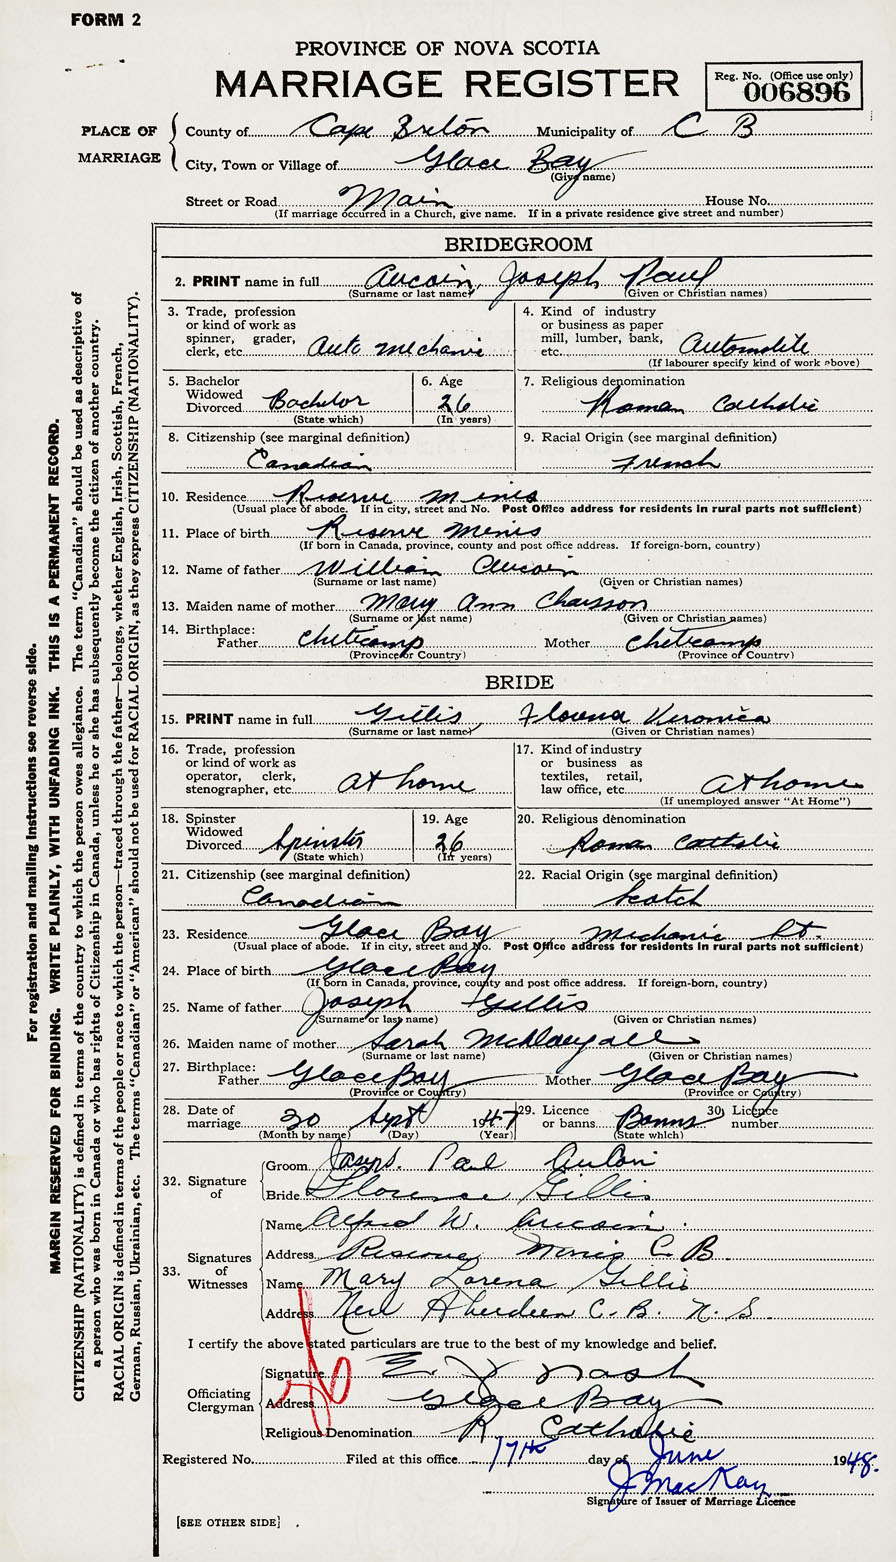 FORM 2
PROVINCE OF NOVA SCOTIA
MARRIAGE REGISTER
Reg. No. (Office use only)
006896
PLACE OF MARRIAGE
County of Cape Breton Municipality of C B
City, Town or Village of Glace Bay
(Give name)
Street or Road Main House No.
(If marriage occurred in a Church, give name. If in a private residence give street and number)
BRIDEGROOM
2. PRINT name in full Aucoin, Joseph Paul
(Surname or last name) (Given or Christian names)
3. Trade, profession or kind of work as spinner, grader, clerk, etc. Auto Mechanic
4. Kind of industry or business as paper mill, lumber, bank, etc. Automobile
(If labourer specify kind of work above)
5. Bachelor Widowed Divorced Bachelor
(State which)
6. Age 26
(In years)
7. Religious denomination
Roman Catholic
8. Citizenship (see marginal definition)
Canadian
9. Racial Origin (see marginal definition)
French
10. Residence Reserve Mines
(Usual place of abode. If in city, street and No. Post Office address for residents in rural parts not sufficient)
11. Place of birth Reserve Mines
(If born in Canada, province, county and post office address. If foreign-born, country)
12. Name of father William Aucoin
(Surname or last name) (Given or Christian names)
13. Maiden name of mother Mary Ann Chaisson
(Surname or last name) (Given or Christian names)
14. Birthplace:
Father Cheticamp Mother Cheticamp
(Province or Country) (Province or Country)
BRIDE
15. PRINT name in full Gillis, Florence Veronica
(Surname or last name) (Given or Christian names)
16. Trade, profession or kind of work as operator, clerk, stenographer, etc. At home
17. Kind of industry or business as textiles, retail, law office, etc. At home
(If unemployed answer "At Home")
18. Spinster Widowed Divorced Spinster
(State which)
19. Age 26
(In years)
20. Religious denomination
Roman Catholic
21. Citizenship (see marginal definition)
Canadian
22. Racial Origin (see marginal definition)
Scotch
23. Residence Glace Bay Mechanic St.
(Usual place of abode. If in city, street and No. Post Office address for residents in rural parts not sufficient)
24. Place of birth Glace Bay
(If born in Canada, province, county and post office address. If foreign-born, country)
25. Name of father Joseph Gillis
(Surname or last name) (Given or Christian names)
26. Maiden name of mother Sarah McDougall
(Surname or last name) (Given or Christian names)
27. Birthplace:
Father Glace Bay Mother Glace Bay
(Province or Country) (Province or Country)
28. Date of marriage 30 Sept 1947
(Month by name) (Day) (Year)
29. Licence or banns Banns
(State which)
30. Licence number
32. Signature of
Groom Joseph Paul Aucoin
Bride Florence Gillis
33. Signatures of Witnesses
Name Alfred W. Aucoin
Address Reserve Mines C. B.
Name Mary Lorena Gillis
Address New Aberdeen C. B. N. S.
I certify the above stated particulars are true to the best of my knowledge and belief.
Officiating Clergyman
Signature E. J. Nash
Address Glace Bay
Religious Denomination R. Catholic
Registered No. Filed at this office 17th day of June 1948.
J MacKay
Signature of Issuer of Marriage Licence
[SEE OTHER SIDE]
For registration and mailing instructions see reverse side.
MARGIN RESERVED FOR BINDING. WRITE PLAINLY, WITH UNFADING INK. THIS IS A PERMANENT RECORD.
CITIZENSHIP (NATIONALITY) is defined in terms of the country to which the person owes allegiance. The term "Canadian" should be used as descriptive of
a person who was born in Canada or who has rights of Citizenship in Canada, unless he or she has subsequently become the citizen of another country.
RACIAL ORIGIN is defined in terms of the people or race to which the person—traced through the father—belongs, whether English, Irish, Scottish, French,
German, Russian, Ukrainian, etc. The terms "Canadian" or "American" should not be used for RACIAL ORIGIN, as they express CITIZENSHIP (NATIONALITY).